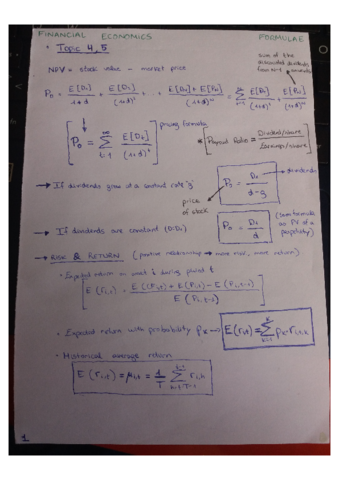 FINANCIAL ECONOMICS FORMULAE
• TOPIC 4,5
sum of the discounted dividends
NPV = stock value - market price
P₀ = E[D₁]/(1+d) + E[D₂]/(1+d)² + ... + E[Dₙ]+E[Pₙ]/(1+d)ⁿ
[P₀ = Σ E[Dt]/(1+d)^t] pricing formula
* [Payout Ratio = Dividend/share / Earnings/share]
→ If dividends grow at a constant rate "g"
P₀ = D₁/(d-g) → dividends
price of stock
→ If dividends are constant
P₀ = D₁/d
(same formula as PV of a perpetuity)
→ RISK & RETURN (positive relationship → more risk, more return)
• Expected return on asset i during period t
• Expected return with probability pk → E(ri,t) = Σ pk · ri,t,k
• Historical average return
E(ri,t) = μi,t = 1/T Σ ri,k
1